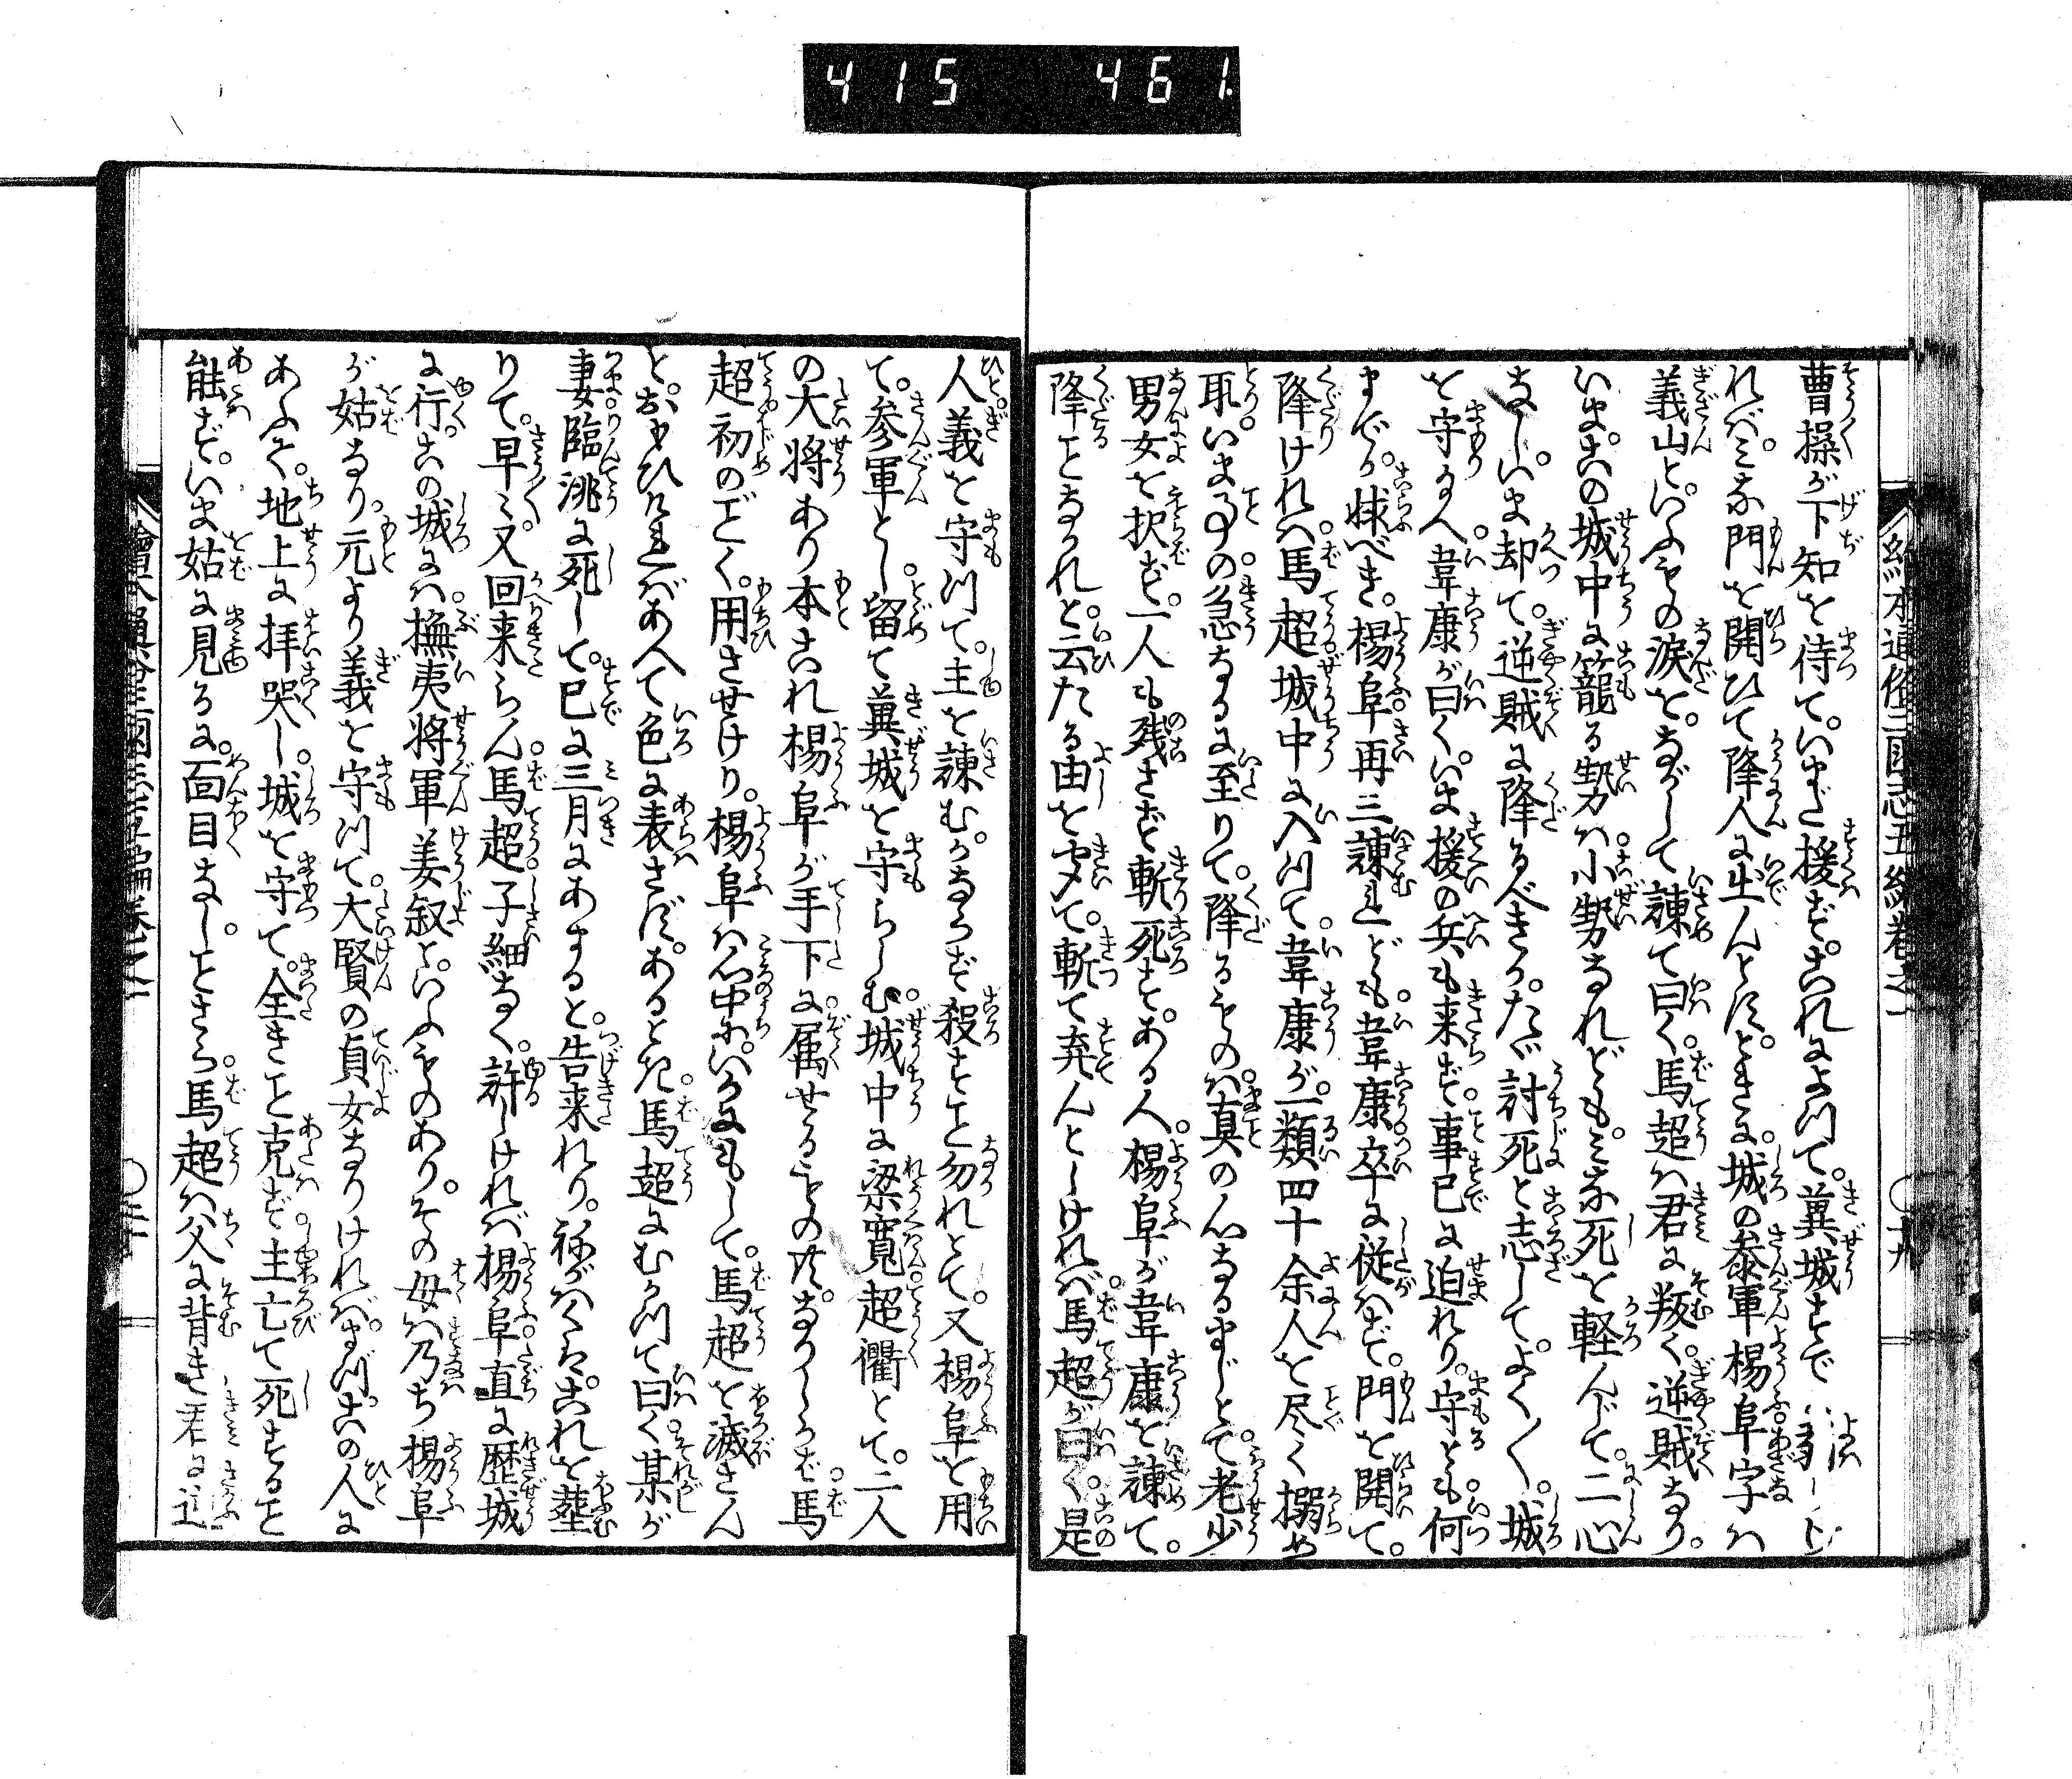 415 461
絵本通俗三国志五編巻之一
曹操が下知を待て。いまだ援ず。これによつて。冀城すで
ればみな門を開ひて降人に出んとす。ときに。城の参軍楊阜字は
義山といふもの涙をながして諫て曰く。馬超は君に叛く。逆賊なり。
いまこの城中に籠る勢は小勢なれども。みな死を軽んじて。二心
なし。いま却て。逆賊に降るべきか。たゞ討死と志してよく〳〵。城
を守り給へ韋康が曰く。いま援の兵も来らず。事已に迫れり。守とも何
までか拔べき。楊阜再三諫れども韋康卒に従はず。門を開て。
降ければ馬超城中に入つて。韋康が一類四十余人を尽く搦め
取。いま事の急なるに至りて。降るものは真の心なるまじとて。老少
男女を択ず。一人も残さず斬死す。ある人楊阜が韋康を諫て。
降ことなかれと。云たる由を聞て。斬て弃んとしければ馬超が曰く。是
人義を守つて。主を諫む。かならず殺すこと勿れとて。又楊阜を用
て。参軍とし留て冀城を守らしむ。城中に梁寛趙衢とて。二人
の大将あり本これ楊阜が手下に属せるもの共。なりしかば馬
超初のごとく。用させけり。楊阜は心中にいかにもして。馬超を滅さん
と。おもひければあへて色に表さず。あるとき馬超にむかつて曰く。某が
妻臨洮に死して。已に三月にあまると。告来れり。ねがはくはこれを葬
りて。早々又回来らん。馬超子細なく。許しければ楊阜直に歴城
に行。この城には撫夷将軍姜叙といふものあり。その母は乃ち楊阜
が姑なり元より義を守つて大賢の貞女なりければ。まづこの人に
あふて。地上に拝哭し。城を守て。全きこと克ず主亡て死すること
能ず。いま姑に見るに。面目なし。ことさら馬超は父に背き君に